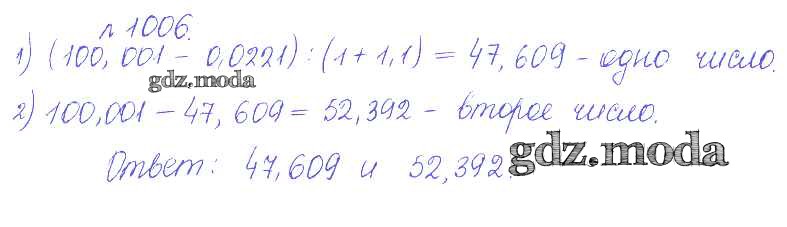 № 1006.
1) (100,001 - 0,0221) : (1 + 1,1) = 47,609 - одно число.
gdz.moda
2) 100,001 - 47,609 = 52,392 - второе число.
Ответ: 47,609 и 52,392.
gdz.moda